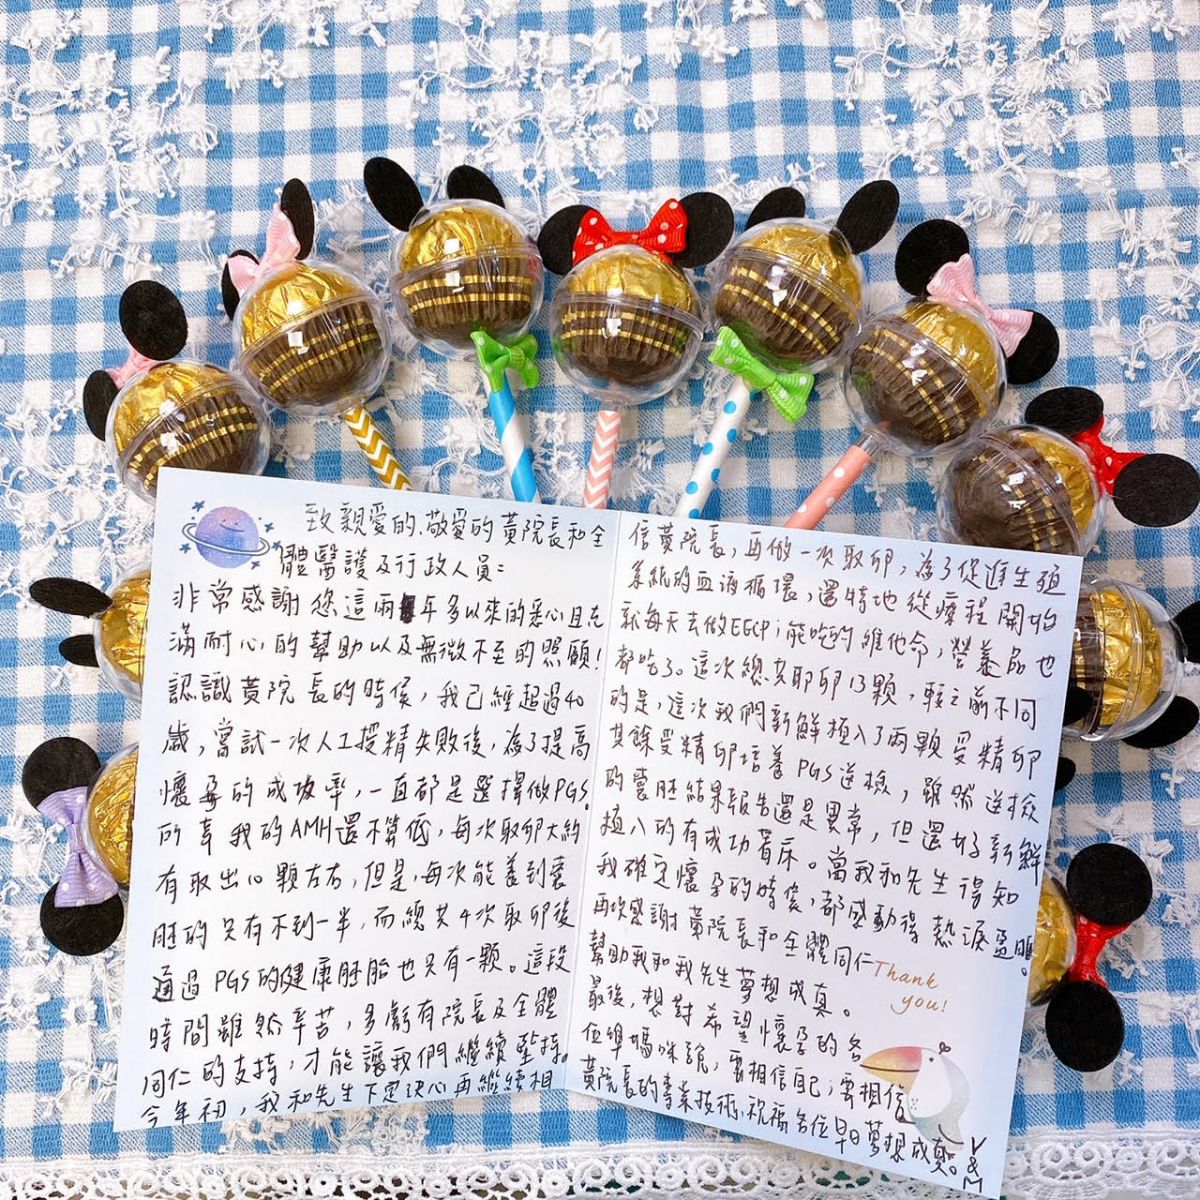 致親愛的、敬愛的黃院長和全
體醫護及行政人員：
非常感謝您這兩年多以來的悉心且充
滿耐心的幫助以及無微不至的照顧！
認識黃院長的時候，我已經超過40
歲，嘗試一次人工授精失敗後，為了提高
懷孕的成功率，一直都是選擇做PGS。
所幸我的AMH還不算低，每次取卵大約
有取出10顆左右，但是，每次能養到囊
胚的只有不到一半，而總共4次取卵後
通過PGS的健康胚胎也只有一顆。這段
時間雖然辛苦，多虧有院長及全體
同仁的支持，才能讓我們繼續堅持。
今年初，我和先生下定決心再繼續相
信黃院長，再做一次取卵，為了促進生殖
系統的血液循環，還特地從療程開始
就每天去做EECP；能吃的維他命，營養品也
都吃了。這次總共取卵13顆，較之前不同
的是，這次我們新鮮植入了兩顆受精卵
其餘受精卵培養PGS送檢，雖然送檢
的囊胚結果報告還是異常，但還好新鮮
植入的有成功著床。當我和先生得知
我確定懷孕的時候，都感動得熱淚盈眶。
再次感謝黃院長和全體同仁
幫助我和我先生夢想成真。
Thank
you!
最後，想對希望懷孕的各
位準媽咪說，要相信自己；要相信
黃院長的專業技術，祝福各位早日夢想成真。
V&M